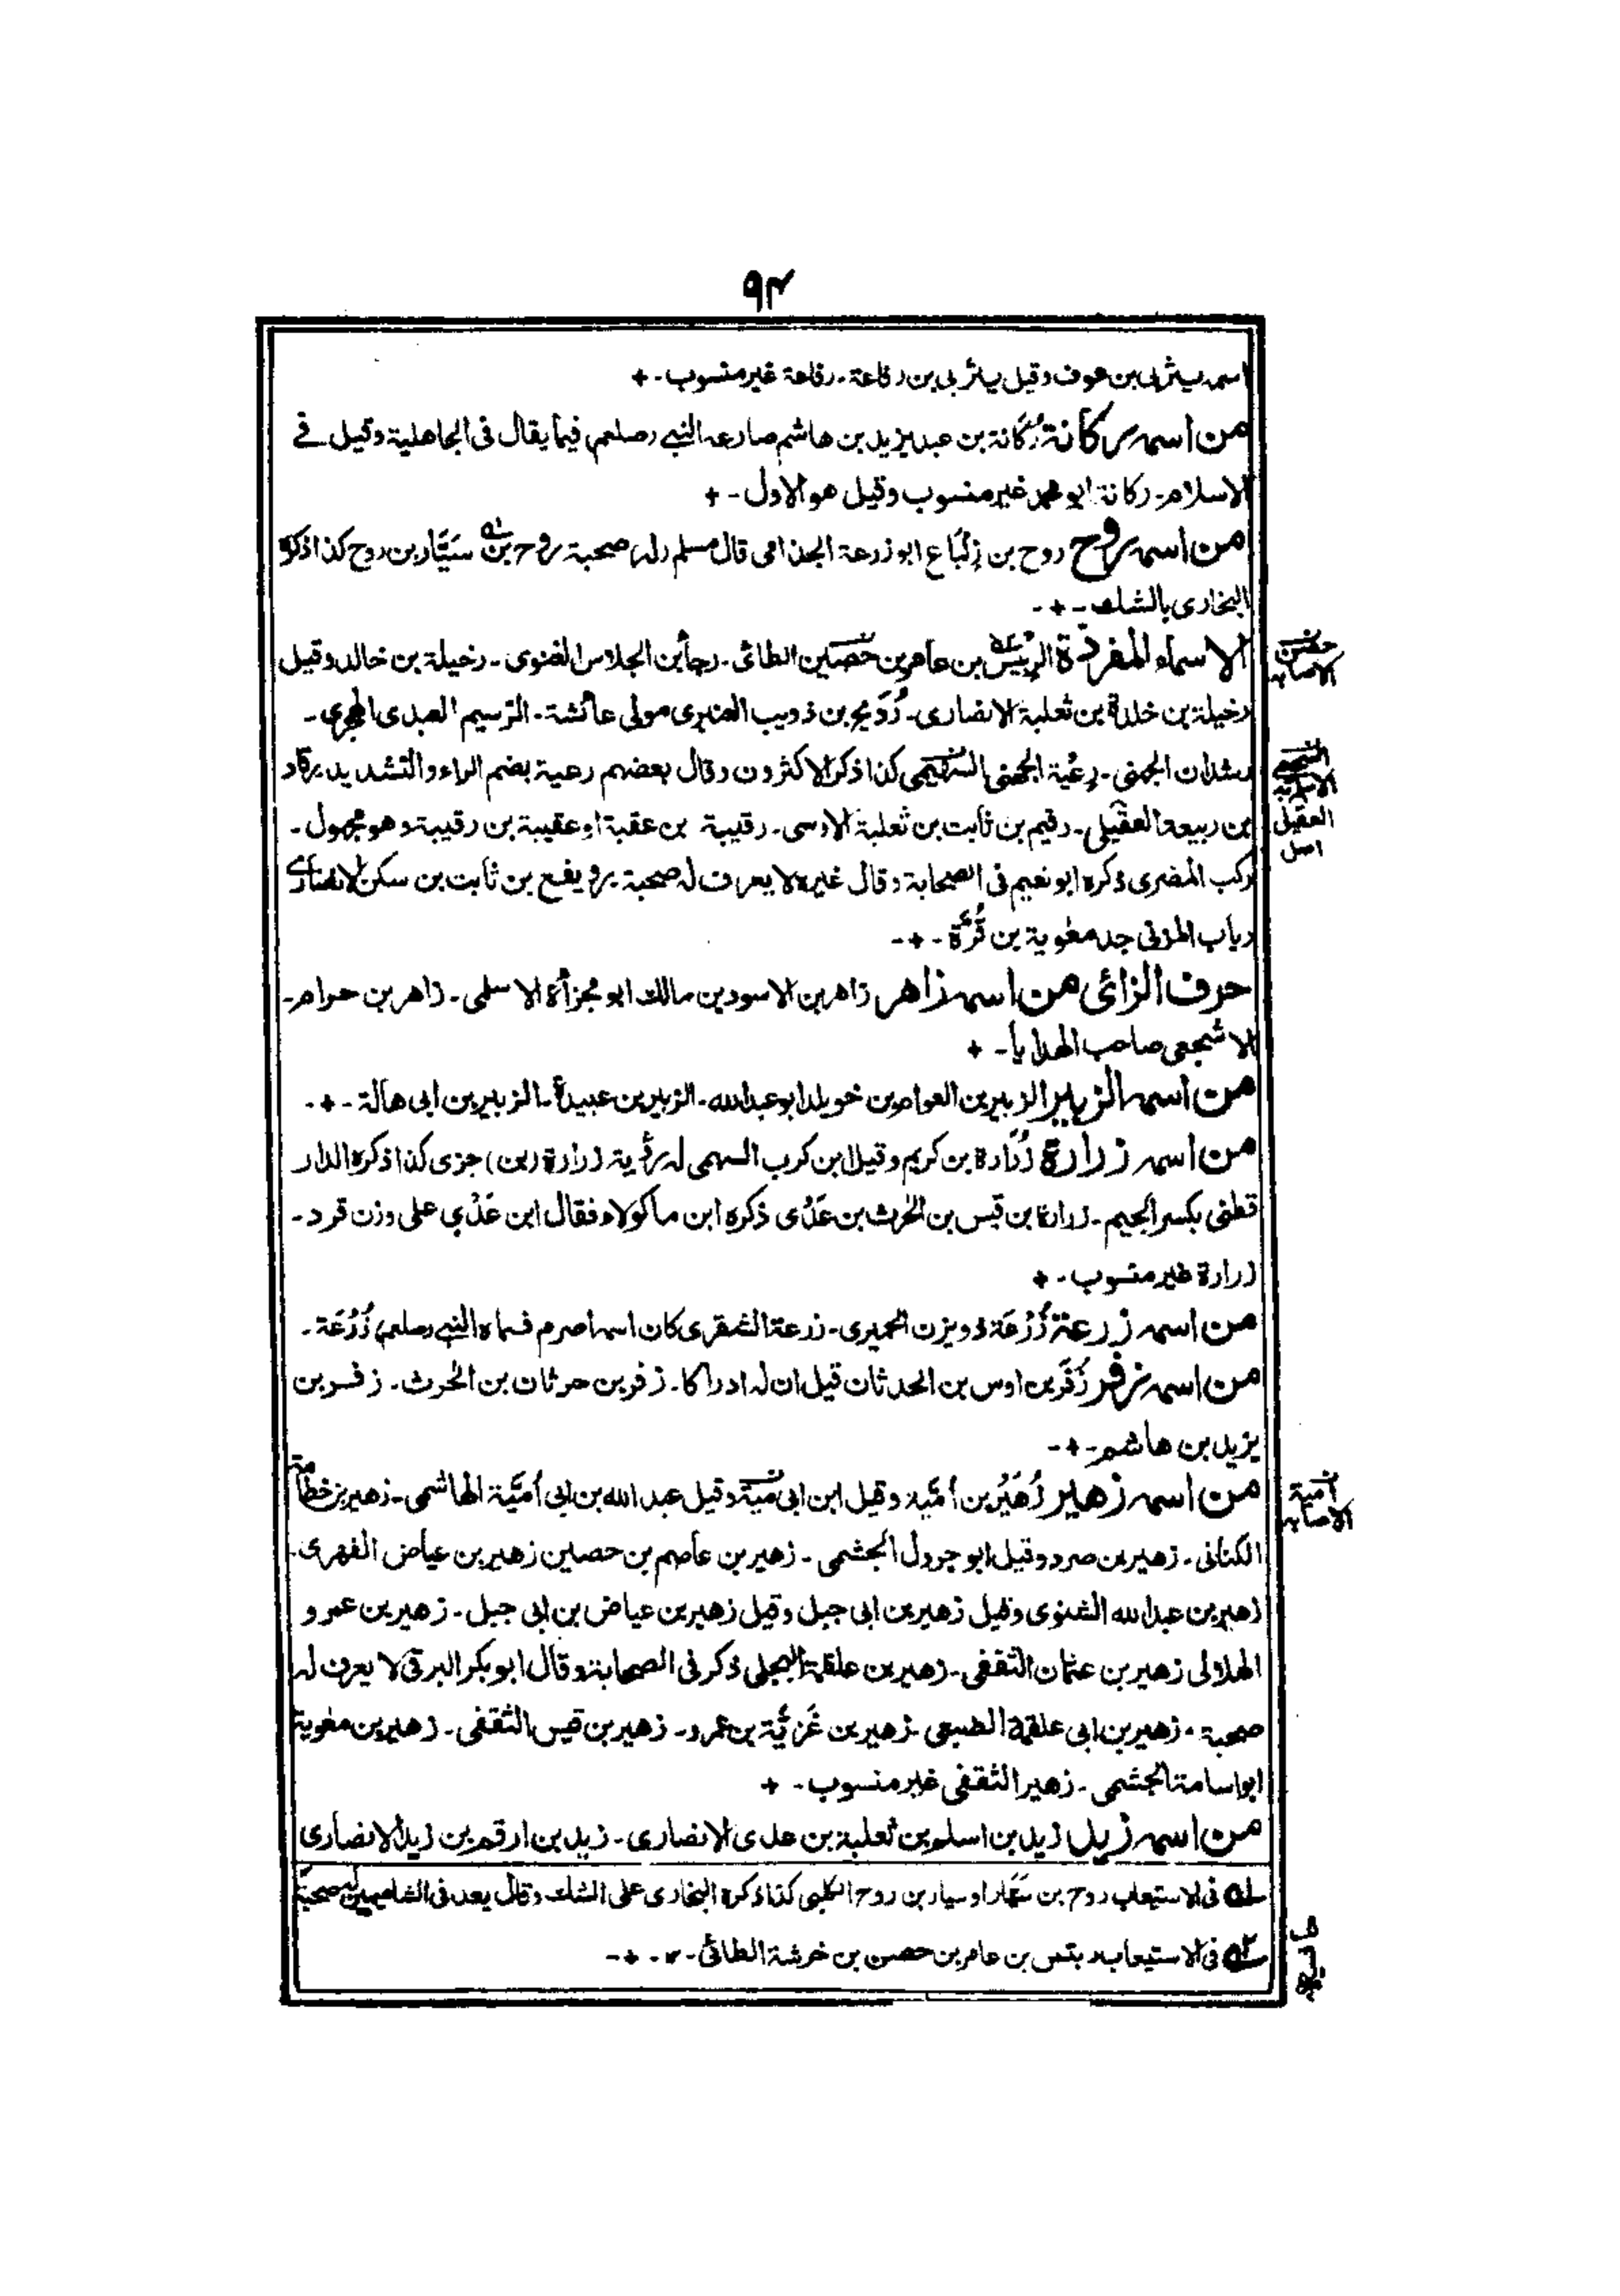 ٩٤
اسمه يثربى بن عوف وقيل يثربى بن رفاعة۔ رفاعة غير منسوب۔ +
من اسمه ركانة رُكَانة بن عبد يزيد بن هاشم صارعه النبى (صلعم) فيما يقال فى الجاهلية وقيل فى
الاسلام۔ ركانة ابو محمد غير منسوب وقيل هو الاول۔ +
من اسمه روح روح بن زِنبَاع ابو زرعة الجذامى قال مسلم (له) صحبة روح بن سَيَّار بن روح كذا ذكره
البخارى بالشك۔ +۔
الاسماء المفردة بن عامر بن حصين الطائى۔ رجأ بن الجلاس الغنوى۔ رخيلة بن خالد وقيل
رخيلة بن خلدة بن ثعلبة الانصارى۔ رُدَيح بن ذويب العنبرى مولى عائشة۔ الرسيم العبدى الهجرى۔
رشدان الجهنى۔ رِعْية الجهنى السحيمى كذا ذكر الاكثرون وقال بعضهم رعية بضم الراء والتشديد۔ رقاد
بن ربيعة العقيلى۔ رقيم بن ثابت بن ثعلبة الاوسى۔ رقيبة بن عقبة او عقيبة بن رقيبة وهو مجهول۔
ركب المضرى ذكره ابو نعيم فى الصحابة وقال غيره لا يعرف له صحبة۔ رويفع بن ثابت بن سكن الانصارى
رياب المزنى جد معٰوية بن قُرَّة۔ +۔
حرف الزائى من اسمه زاهر زاهر بن الاسود بن مالك ابو مجزأة الاسلمى۔ زاهر بن حرام۔
الاشجعى صاحب الهدايا۔ +
من اسمه الزبير الزبير بن العوام بن خويلد ابو عبد الله۔ الزبير بن عبيدة۔ الزبير بن ابى هالة۔ +۔
من اسمه زرارة زُرَارة بن كريم وقيل ابن كرب السهمى له رؤية زرارة (بن) جزى كذا ذكره الدار
قطنى بكسر الجيم۔ زرارة بن قيس بن الحٰرث بن عَدَّى ذكره ابن ماكولاء فقال ابن عَدْىٍ على وزن قرد۔
زرارة غير منسوب۔ +
من اسمه زرعة زُرْعَة ذو يزن الحميرى۔ زرعة الشقرى كان اسمه اصرم فسماه النبى (صلعم) زُرْعَة۔
من اسمه زفر زُفَر بن اوس بن الحدثان قيل ان له ادراكا۔ زفر بن حرثان بن الحٰرث۔ زفر بن
يزيد بن هاشم۔ +۔
من اسمه زهير زُهَيْر بن أمَيّة وقيل ابن ابى مية وقيل عبد الله بن ابى أمَيَّة الهاشمى۔ زهير بن خطامة
الكنانى۔ زهير بن صرد وقيل ابو جرول الجشمى۔ زهير بن عاصم بن حصين زهير بن عياض الفهرى۔
زهير بن عبد الله الشنوى وقيل زهير بن ابى جبل وقيل زهير بن عياض بن ابى جبل۔ زهير بن عمرو
الهلالى زهير بن عثمان الثقفى۔ زهير بن علقمة البجلى ذكر فى الصحابة وقال ابو بكر البرقى لا يعرف له
صحبة۔ زهير بن ابى علقمة الضبعى۔ زهير بن غَزِيَّة بن عمرو۔ زهير بن قيس الثقفى۔ زهير بن معٰوية
ابو اسامة الجشمى۔ زهير الثقفى غير منسوب۔ +
من اسمه زيد زيد بن اسلم بن ثعلبة بن عدى الانصارى۔ زيد بن ارقم بن زيد الانصارى
١ه فى الاستيعاب روح بن سَيَّار او سيار بن روح الكلبى كذا ذكره البخارى على الشك وقال يعد فى الشاميين له صحبة
٢ه فى الاستيعاب ربتس بن عامر بن حصن بن خرشة الطائى۔
حصن
الاصابه
العقيل
اصل
امية
الاصابه